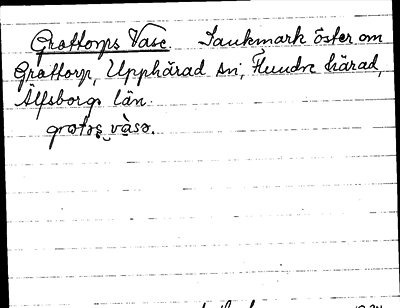 Grottorps Vase. Sankmark öster om
Grottorp, Upphärad sn, Flundre härad,
Älfsborgs län.